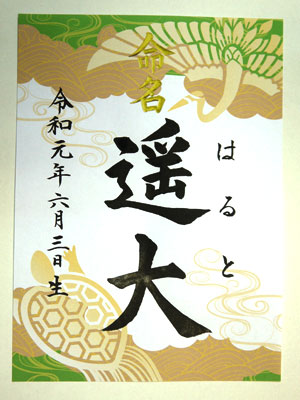 命名
はると
遥大
令和元年六月三日生